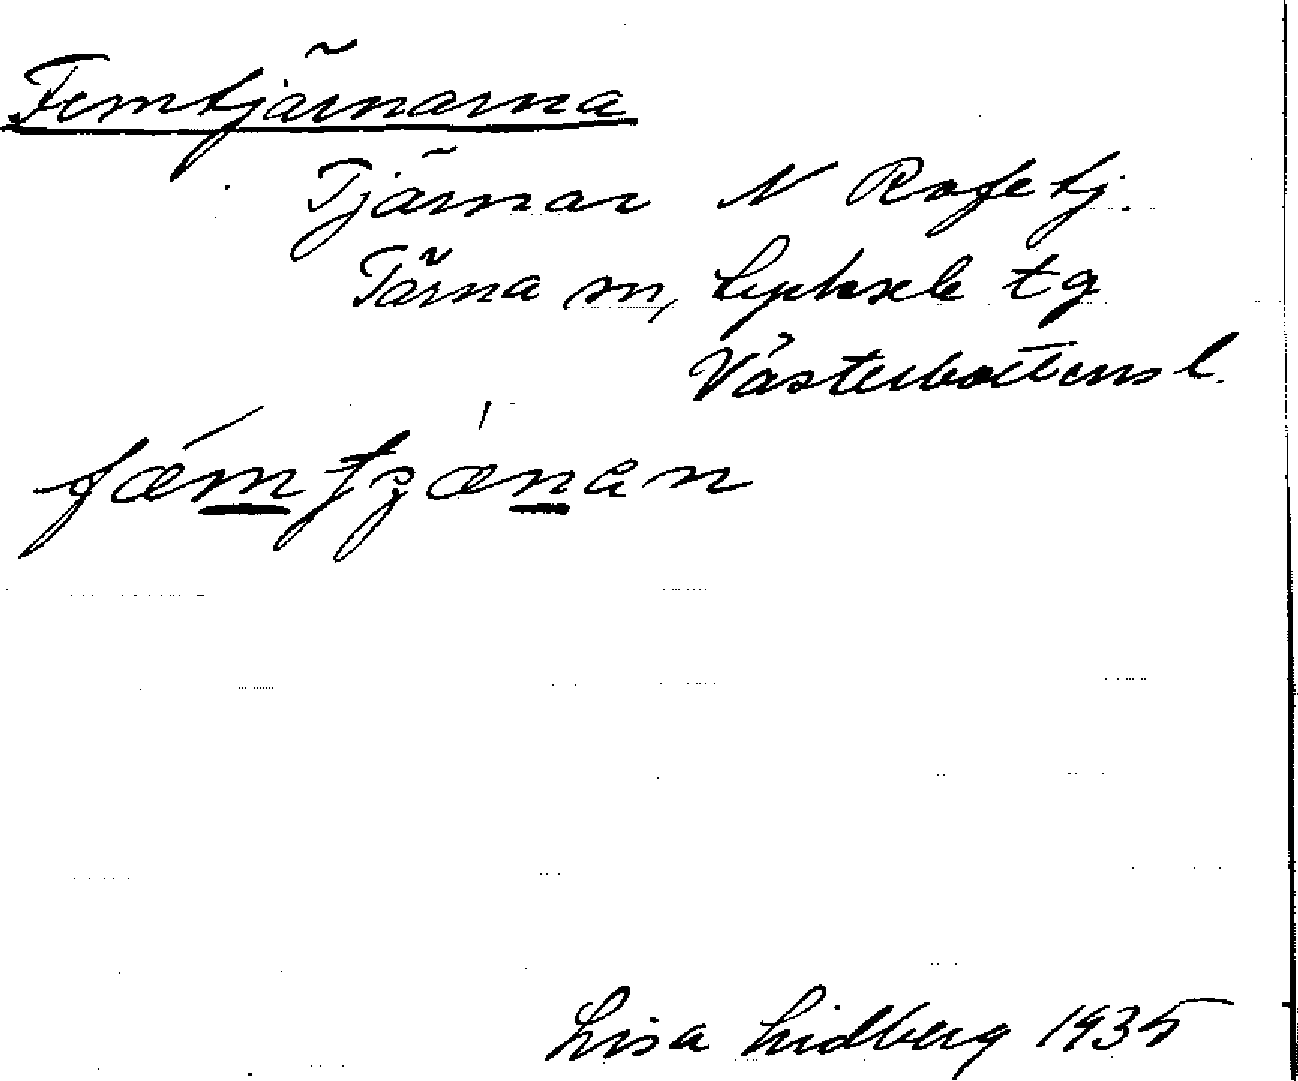 Femtjärnarna
Tjärnar N Rofetj.
Tärna sn, Lycksele tg
Västerbottens l.
Lisa Lidberg 1935